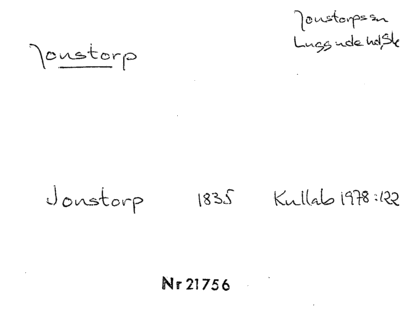 Jonstorps sn
Luggude hd, Sk
Jonstorp
Jonstorp 1835 Kullab 1978:122
Nr 21756